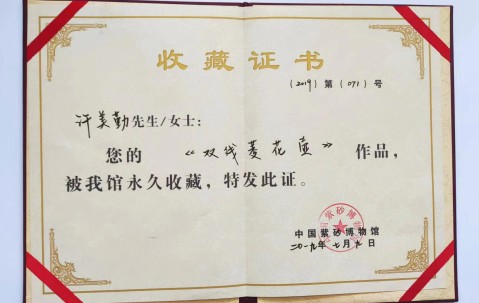 收藏证书
(2019)第(071)号
许美勤先生/女士:
您的《双线菱花壶》作品,
被我馆永久收藏,特发此证。
中国紫砂博物馆
二〇一九年七月九日